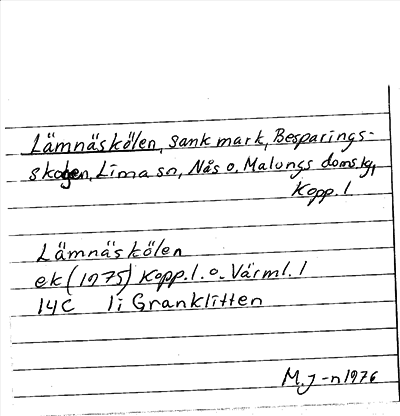 Lämnäskölen, sank mark, Besparings-
skogen, Lima sn, Nås o. Malungs doms.tg,
Kopp. l.
Lämnäskölen
ek (1975) Kopp.l. o. Värml. l
14C 1i Granklitten
M.J-n 1976